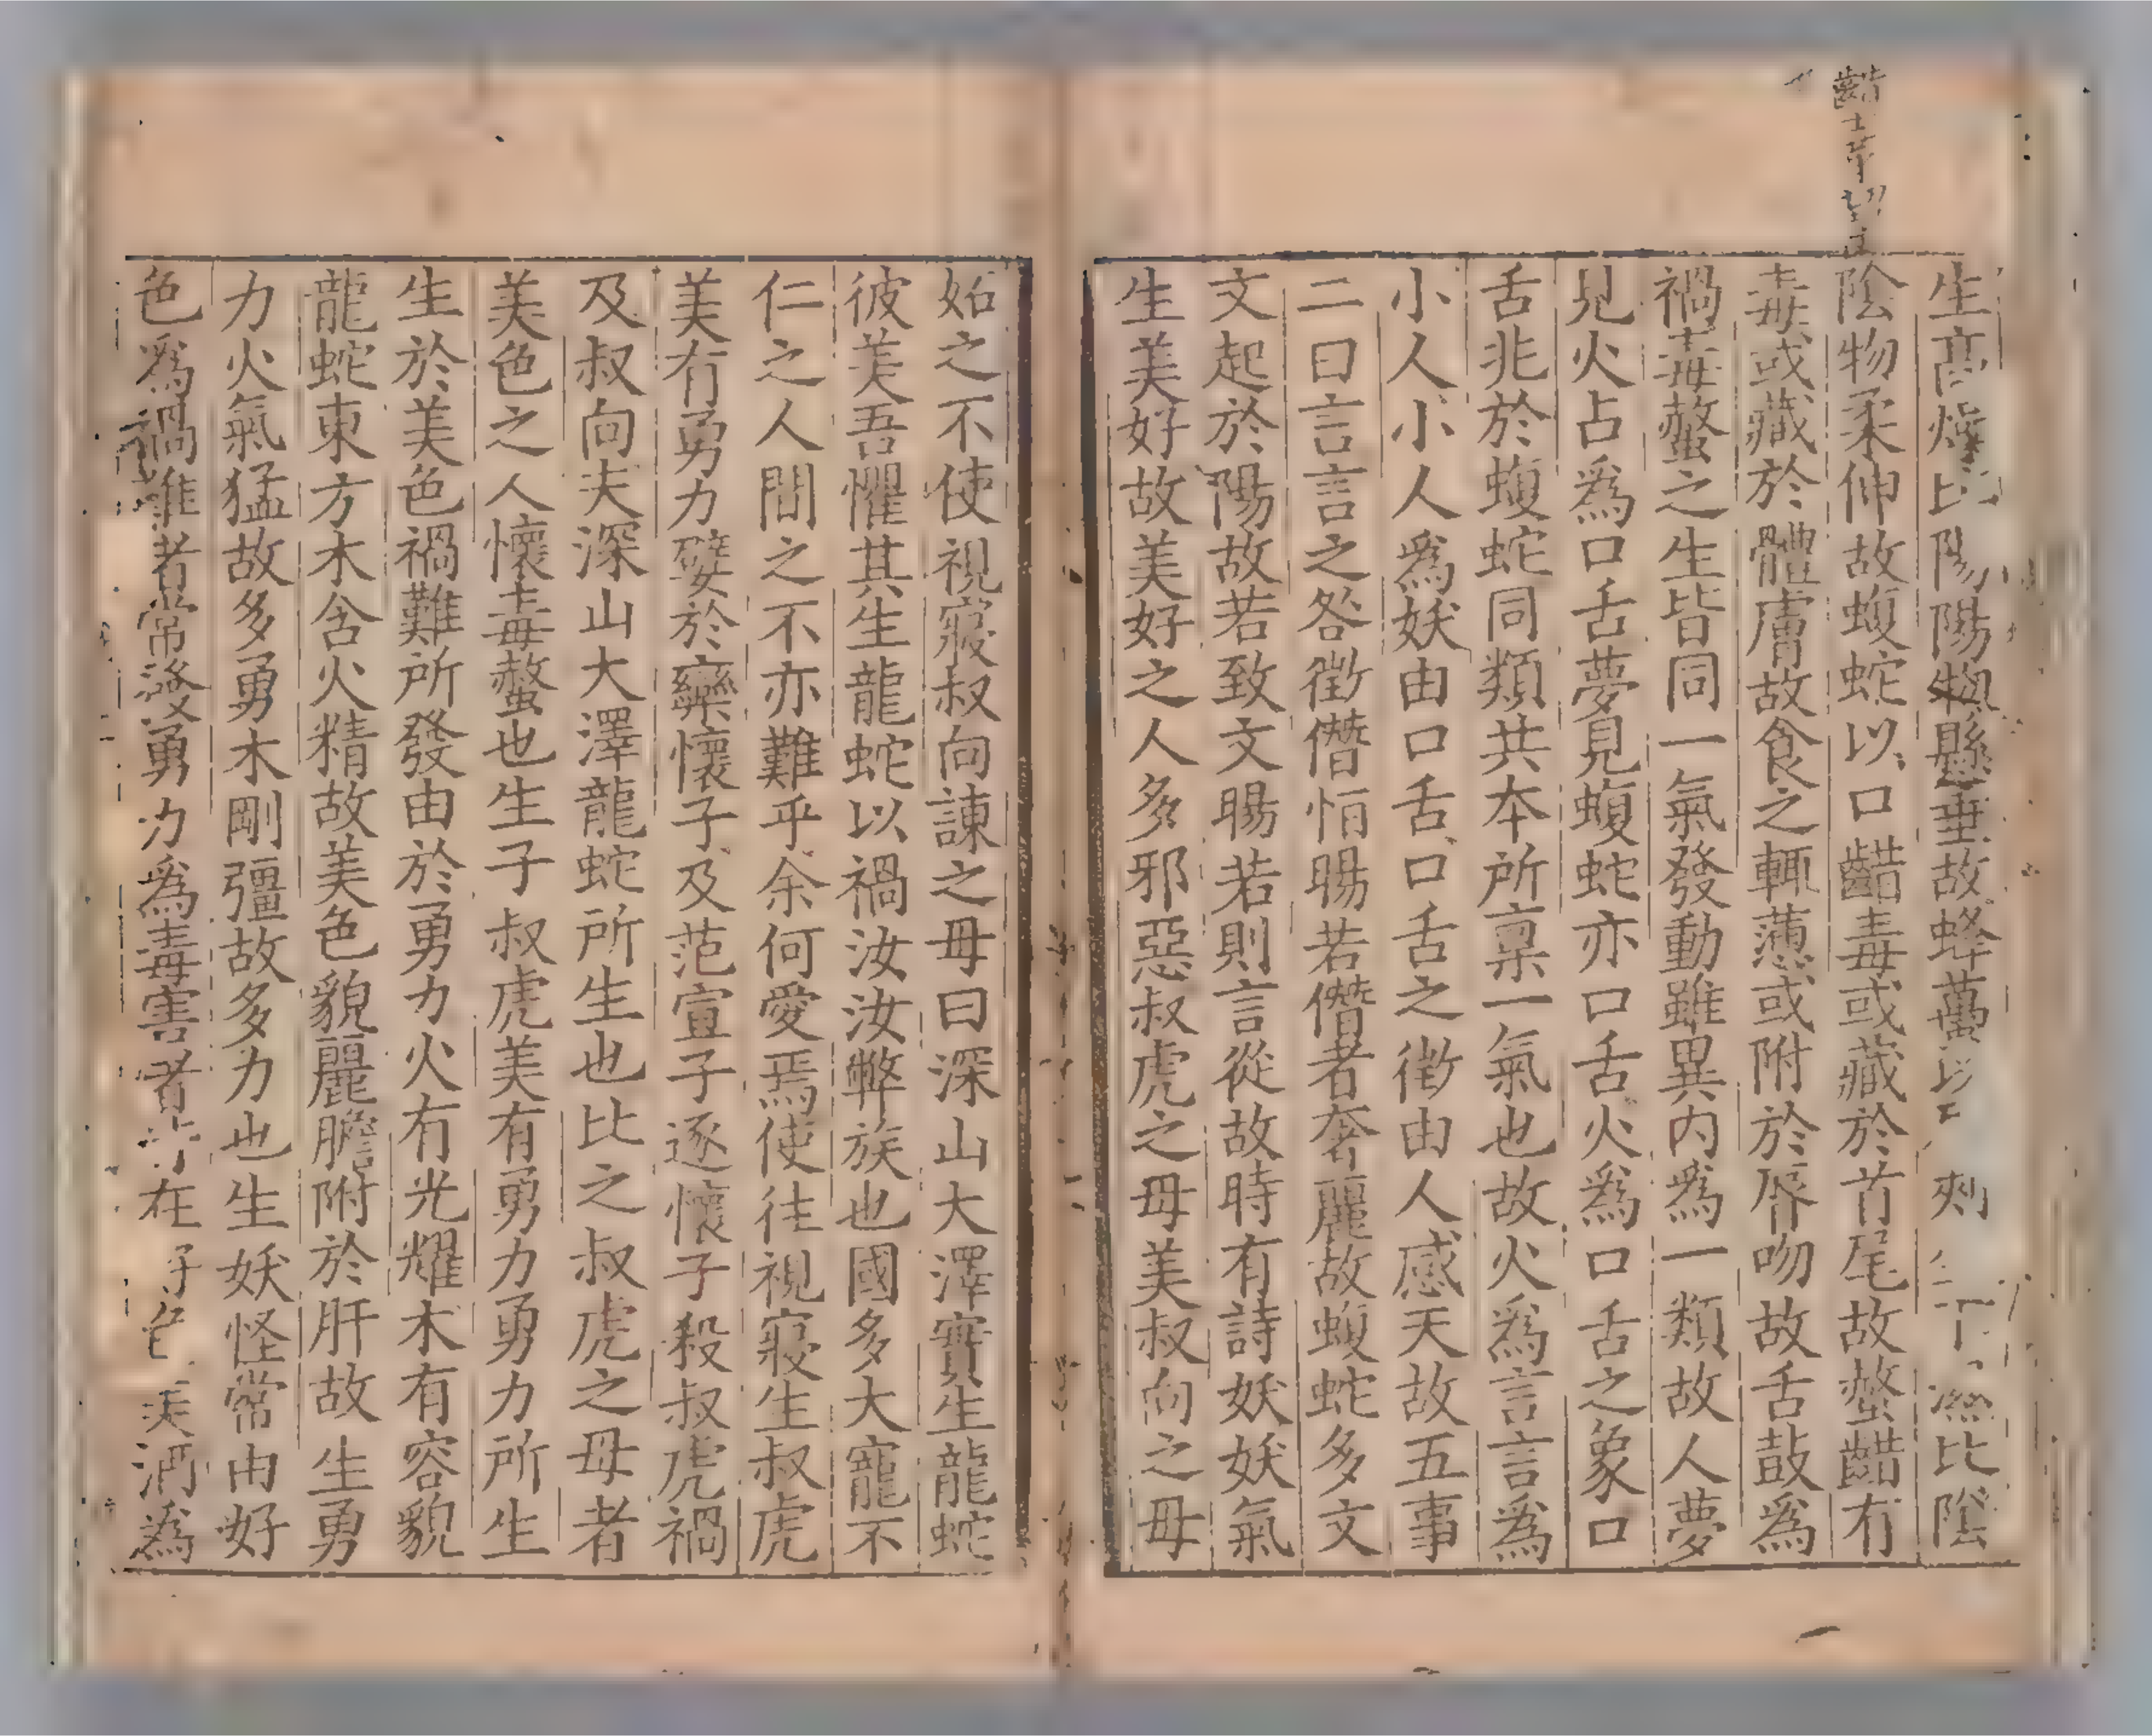 生高燥比陽陽物懸垂故蜂蠆以刺生下濕比陰
陰物柔伸故蝮蛇以口齰毒或藏於首尾故螫齰有
毒或藏於體膚故食之輒懣或附於脣吻故舌鼓爲
禍毒螫之生皆同一氣發動雖異内爲一類故人夢
見火占爲口舌夢見蝮蛇亦口舌火爲口舌之象口
舌兆於蝮蛇同類共本所稟一氣也故火爲言言爲
小人小人爲妖由口舌口舌之徵由人感天故五事
二曰言言之咎徵僭恒暘若僭者奢麗故蝮蛇多文
文起於陽故若致文暘若則言從故時有詩妖妖氣
生美好故美好之人多邪惡叔虎之母美叔向之母
妬之不使視寢叔向諫之母曰深山大澤實生龍蛇
彼美吾懼其生龍蛇以禍汝汝弊族也國多大寵不
仁之人間之不亦難乎余何愛焉使往視寢生叔虎
美有勇力嬖於欒懷子及范宣子逐懷子殺叔虎禍
及叔向夫深山大澤龍蛇所生也比之叔虎之母者
美色之人懷毒螫也生子叔虎美有勇力勇力所生
生於美色禍難所發由於勇力火有光耀木有容貌
龍蛇東方木含火精故美色貌麗膽附於肝故生勇
力火氣猛故多勇木剛彊故多力也生妖怪常由好
色爲禍難者常發勇力爲毒害者皆在好色美酒爲